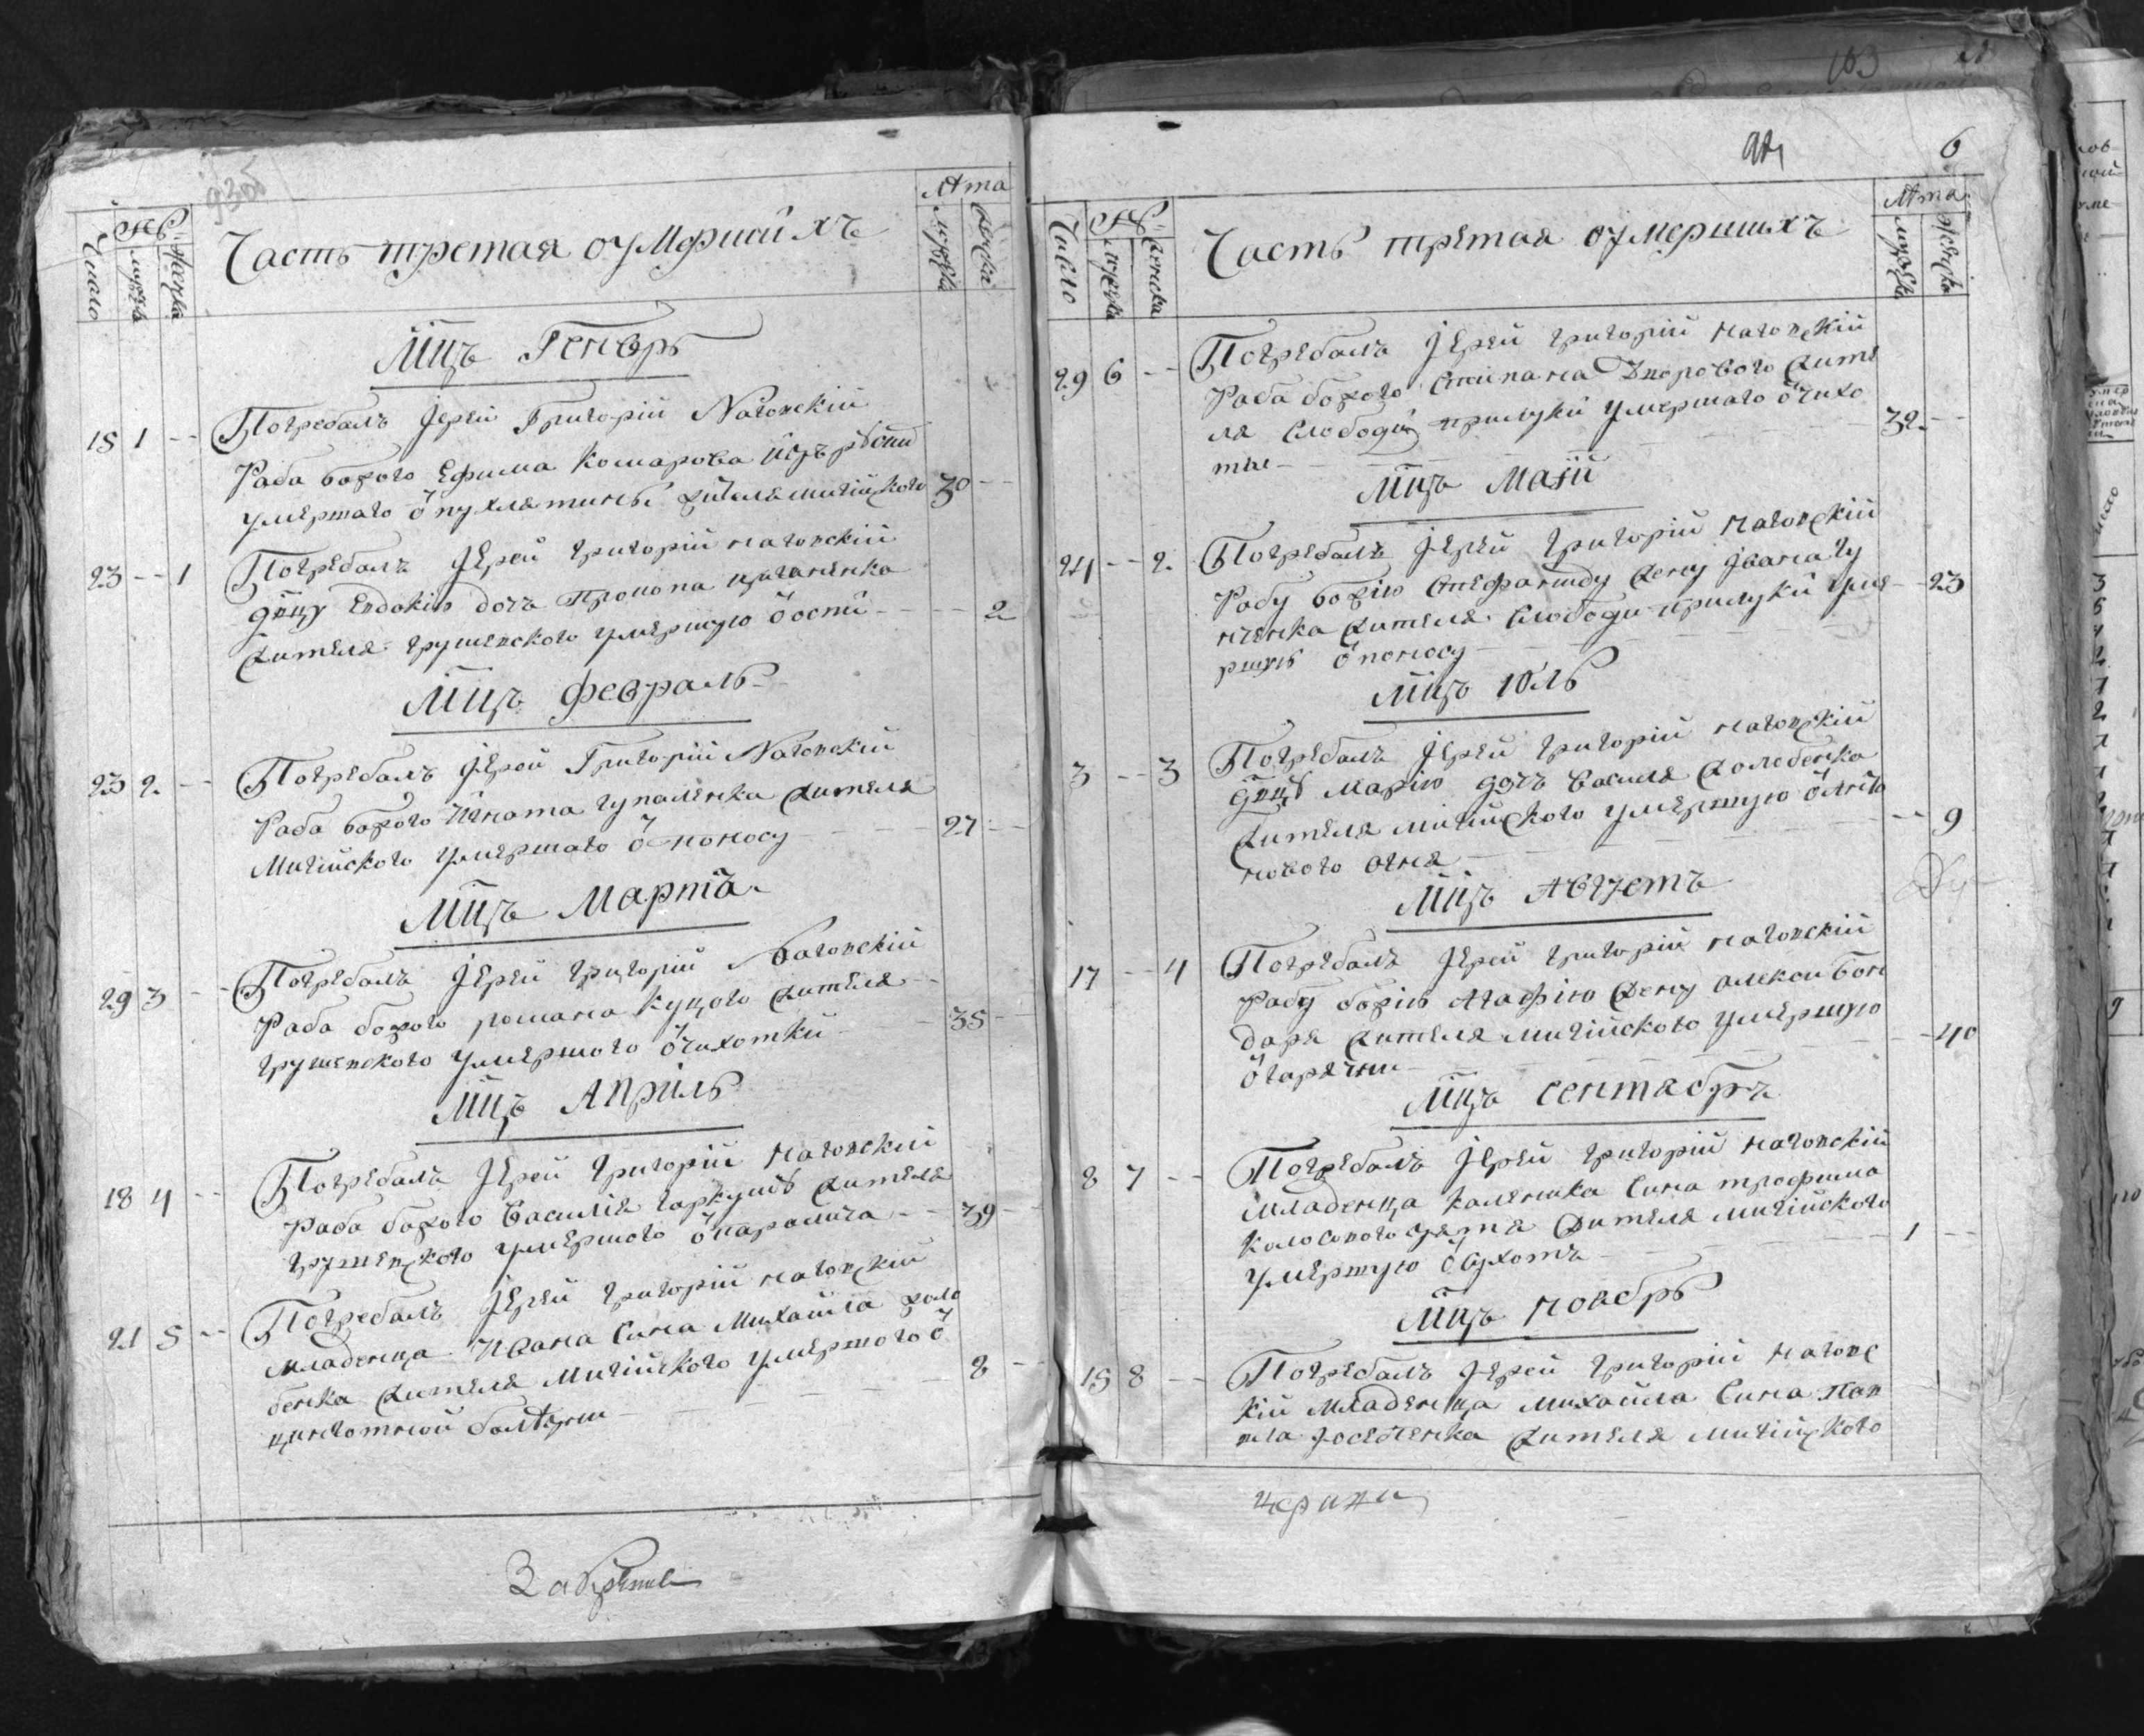 93об
Число
мужеска
женска
Часть третая оумерших
Лѣта
мужеска
женска
Мцъ Генварь
15 1 -- Погребалъ Іерей Григорій Нагонскій
Раба божого Ефима Комарова
умершаго ѿ пухлятины жителя мигійского 30 --
23 -- 1 Погребалъ Іерей григорій нагонскій
дѣцу Евдокію дочь Прокопа циганенка
жителя грушевского умершую ѿ оспи -- 2
Мцъ февраль
23 2. -- Погребалъ Іерей Григорій Нагонскій
Раба божого Игната чупаленка жителя
Мигійского умершаго ѿ поносу 27 --
Мцъ Марта
29 3 -- Погребалъ Іерей григорій Нагонскій
Раба божого романа Куцого жителя
грушевского умершого ѿ чихотки 35 --
Мцъ Априль
18 4 -- Погребалъ Іерей григорій нагонскій
Раба божого Василія гаркушѣ жителя
грушевского умершого ѿ паралича 39 --
21 5 -- Погребалъ Іерей григорій нагонскій
младенца Ивана Сина Михайла голо
бенка жителя Мигійского умершого ѿ
цинготной болѣзни 2 --
94
6
Число
мужеска
женска
Часть третая оумершихъ
Лѣта
мужеска
женска
29 6 -- Погребалъ Іерей григорій нагонскій
Раба божого Степана Хворового жите
ля Слободы прилуки умершаго ѿ чихо
тки 32 --
Мцъ Маій
24 -- 2. Погребалъ Іерей григорій нагонскій
Рабу божію Стефаниду жену Івана
жителя Слободи прилуки уме -- 23
ршую ѿ поносу
Мцъ Юль
3 -- 3 Погребалъ Іерей григорій нагонскій
дѣцу Марію дочь Василя голобенка
жителя мигійского умершую ѿ антѣ -- 9
нового огня
Мцъ Августъ
17 -- 4 Погребалъ Іерей григорій нагонскій
Рабу божію Агафію жену алекси бон
даря жителя мигійского умершую -- 40
ѿ гарячки
Мцъ сентабръ
8 7 -- Погребалъ Іерей григорій нагонскій
младенца каленика Сина трофима
жителя мигійского 1 --
умершую ѿ сухотъ
Мцъ ноябрь
15 8 -- Погребалъ Іерей григорій нагонс
кій младенца михайла Сина пав
ла жителя мигійского